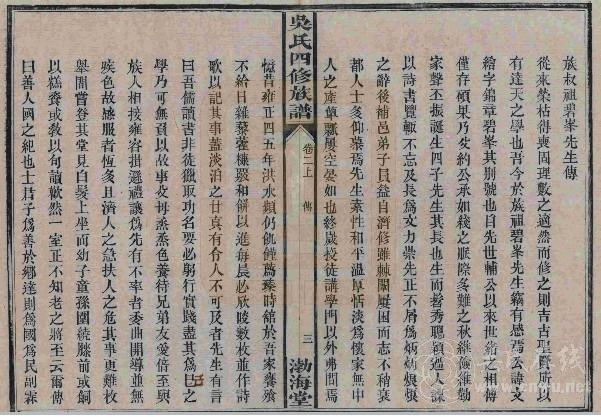 族叔祖碧峯先生傳
從來榮枯得喪固理數之適然而修之則吉古聖賢所以
有達天之學也吾今於族祖碧峯先生竊有感焉公諱文
給字錦章碧峯其别號也自先世輔公以來世 之相傳
僅存碩果乃 約公承如綫之脈際多難之秋維儉維勤
家聲丕振誕生四子先生其長也生而 秀聰穎過人課
以詩書覽輒不忘及長爲文力崇先正不屑爲炳炳烺烺
之辭後補邑弟子員益自濟修雖棘闈屢困而志不稍衰
都人士多仰慕焉先生素性和平温厚恬淡爲懷家無中
人之產簞瓢屢空晏如也終歲授徒講學門以外弗問焉
憶昔雍正四五年洪水頻仍飢饉薦臻時舘於吾家饔飱
不給日雜藜藿糠覈和餅以進每晨必欣啖數枚並作詩
歌以記其事蓋淡泊之甘真有令人不可及者先生有言
曰吾儒讀書非徒獵取功名要必躬行實踐盡其爲己之
學乃可無負以故事父母烝烝色養待兄弟友愛倍至與
族人相接雍容揖遜禮讓爲先有不率者委曲開導並無
疾色故感服者恆多且濟人之急扶人之危其事更難枚
舉間嘗登其堂見白髮上坐而幼子童孫圍繞膝前或飼
以糕 或敎以句讀歡然一室正不知老之將至云爾傳
曰善人國之紀也士君子爲善於鄉達則爲國爲民副霖
吳氏四修族譜
卷二上
傳
三
渤海堂